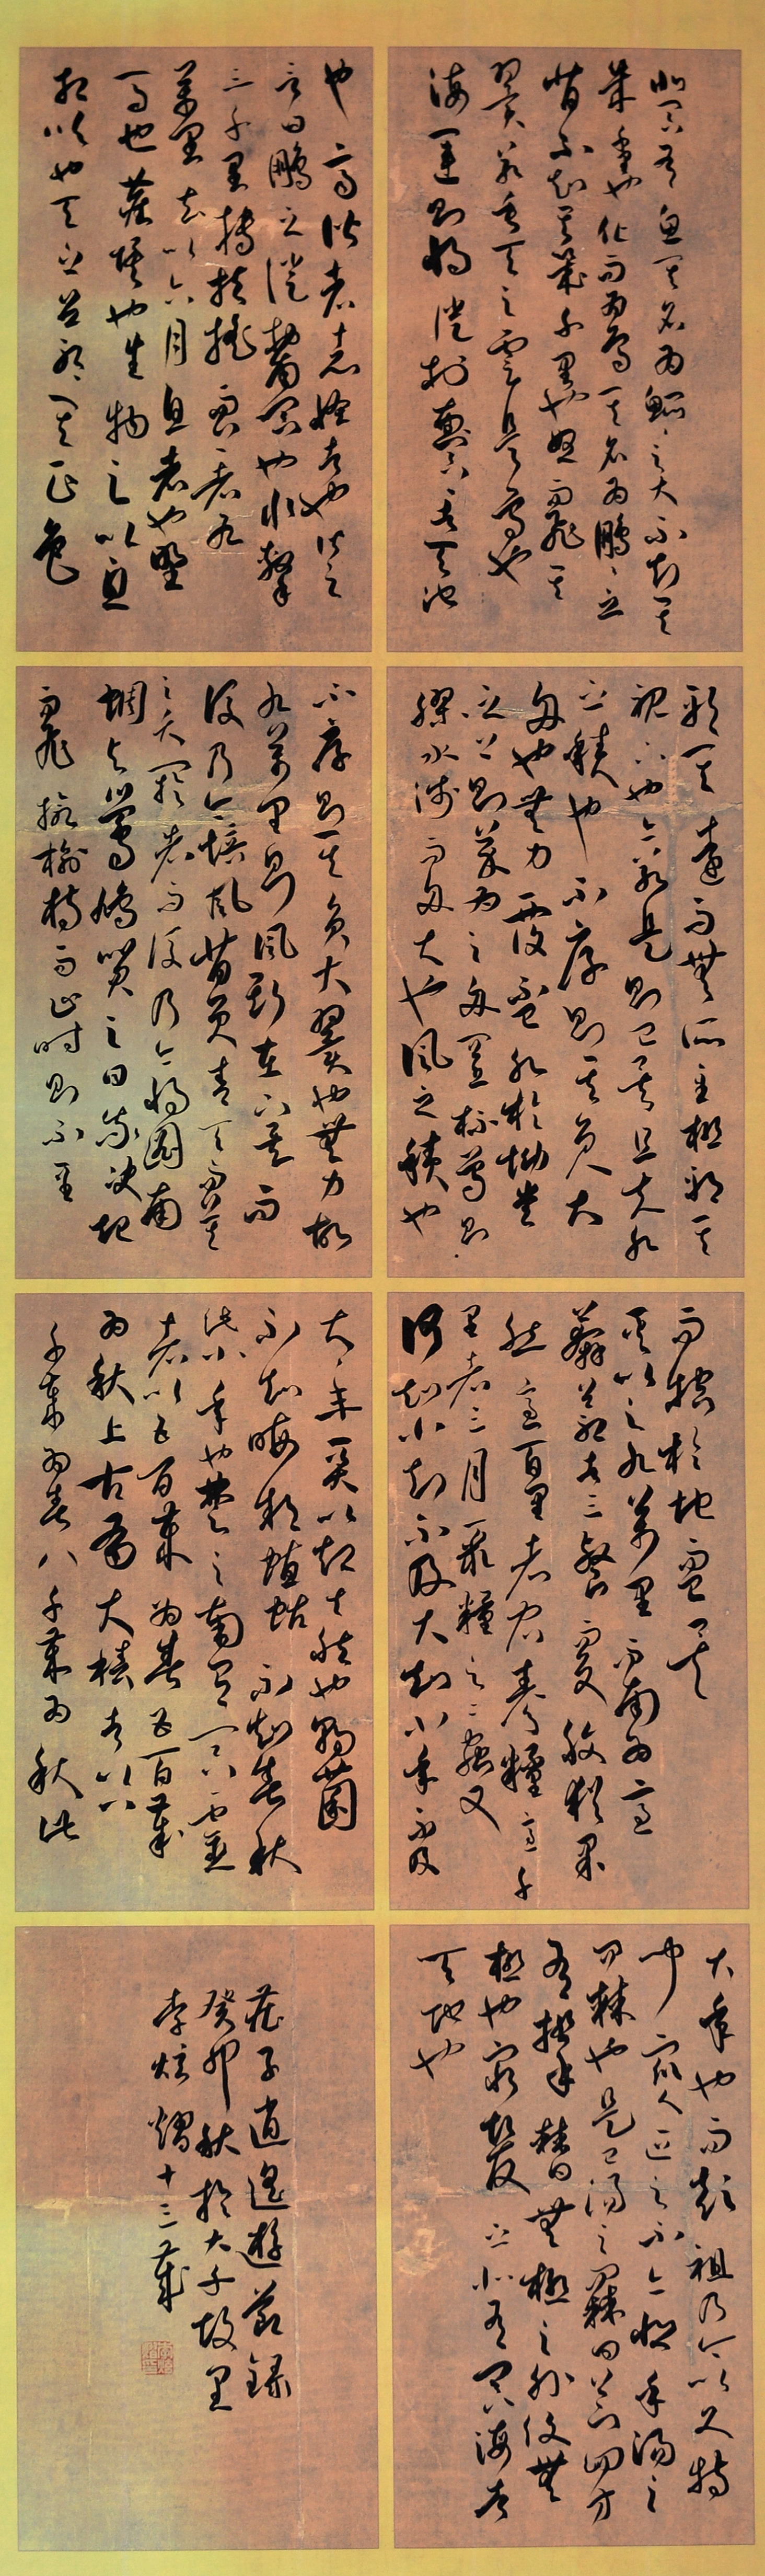 北冥有魚其名為鯤〻之大不知其
幾千里也化而為鳥其名為鵬〻之
背不知其幾千里也怒而飛其
翼若垂天之雲是鳥也
海運則將徙於南冥〻者天池
也齊諧者志怪者也諧之
言曰鵬之徙南冥也水擊
三千里摶扶搖而上者九
萬里去以六月息者也野
馬也塵埃也生物之以息
相吹也天之蒼〻其正色
邪其遠而無所至極邪其
視下也亦若是則已矣且夫水
之積也不厚則其負大
舟也無力覆杯水於坳堂
之上則芥為之舟置杯焉則
膠水淺而舟大也風之積也
不厚則其負大翼也無力故
九萬里則風斯在下矣而
後乃今培風背負青天而莫
之夭閼者而後乃今將圖南
蜩與鷽鳩笑之曰我決起
而飛搶榆枋而止時則不至
而控於地而已矣
奚以之九萬里而南為適
莽蒼者三餐而反腹猶果
然適百里者宿舂糧適千
里者三月聚糧之二蟲又
何知小知不及大知小年不及
大年奚以知其然也朝菌
不知晦朔蟪蛄不知春秋
此小年也楚之南有冥靈
者以五百歲為春五百歲
為秋上古有大椿者以八
千歲為春八千歲為秋此
大年也而彭祖乃今以久特
聞眾人匹之不亦悲乎湯之
問棘也是已湯之問棘曰上下四方
有極乎棘曰無極之外復無
極也窮髮之北有冥海者
天池也
莊子逍遙遊節錄
癸卯秋於大千故里
李炫熠十三歲